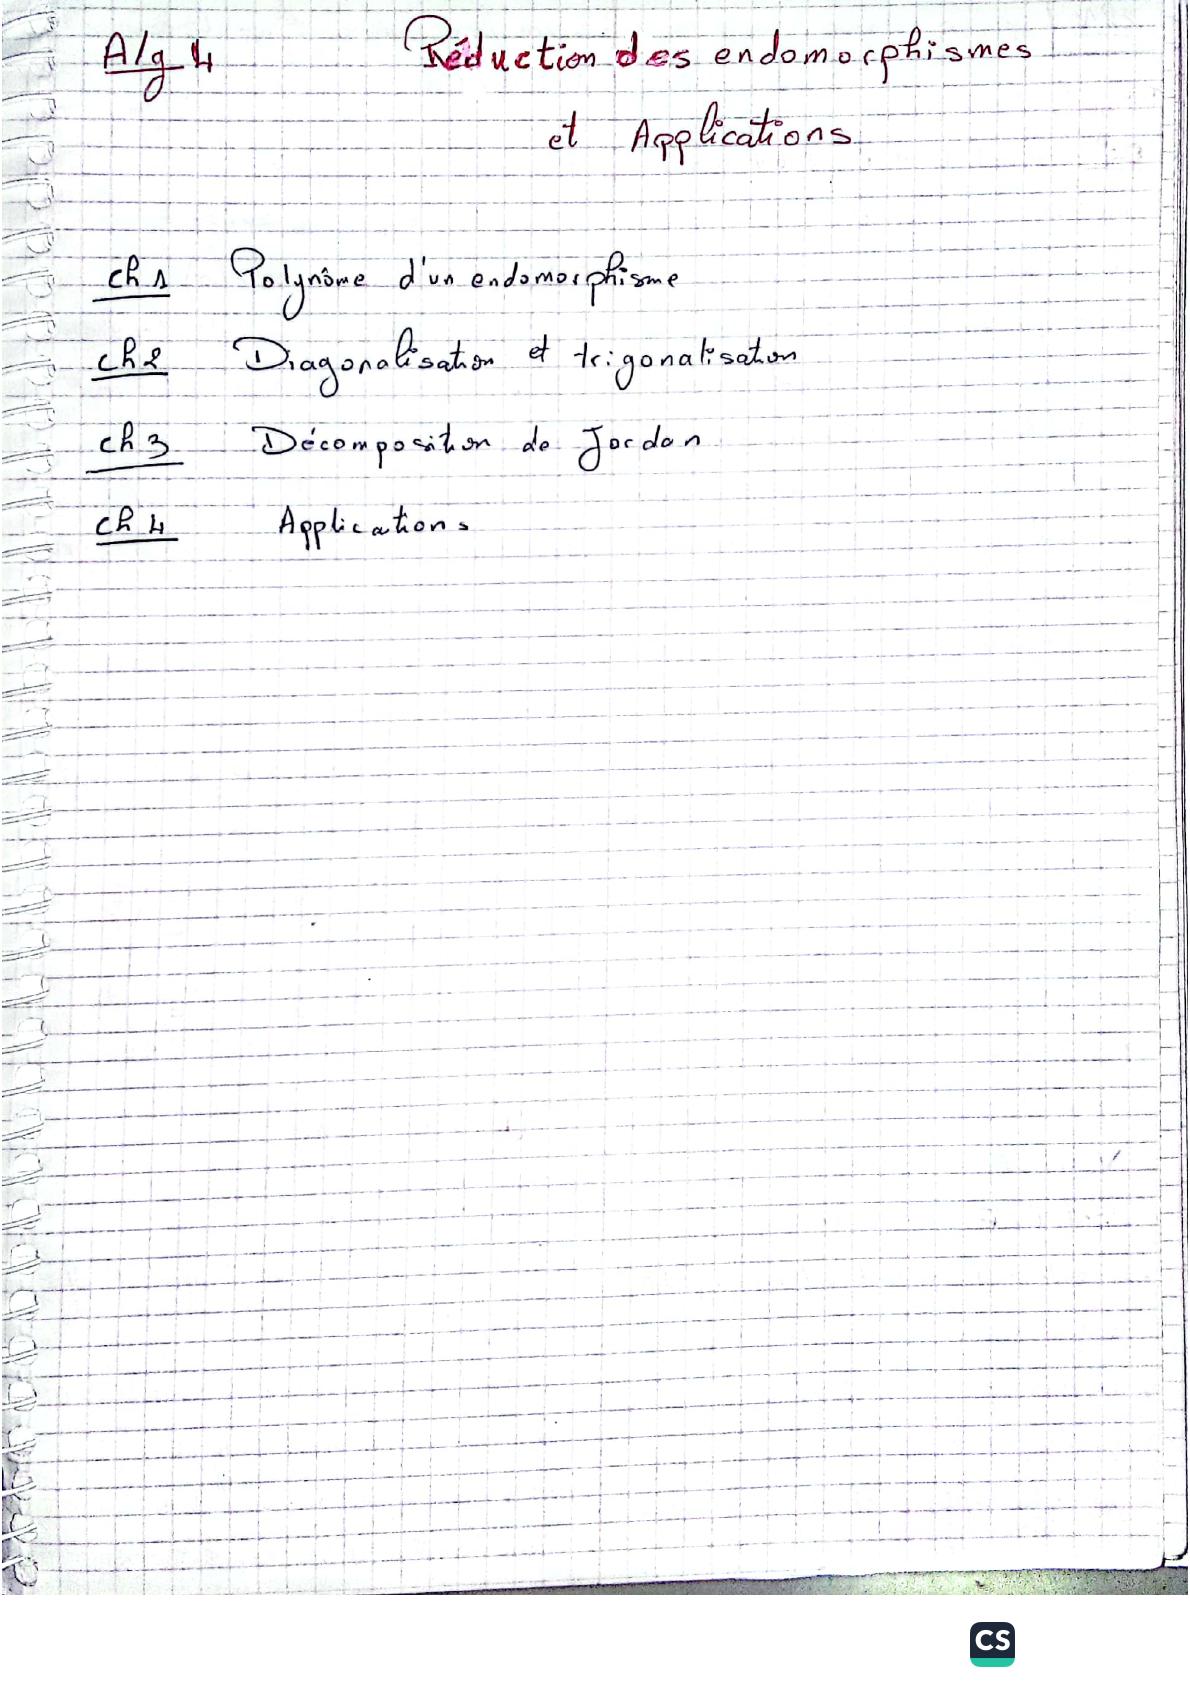 Alg 4 Réduction des endomorphismes
et Applications
ch 1 Polynôme d'un endomorphisme
ch 2 Diagonalisation et trigonalisation
ch 3 Décomposition de Jordan
ch 4 Applications
CS